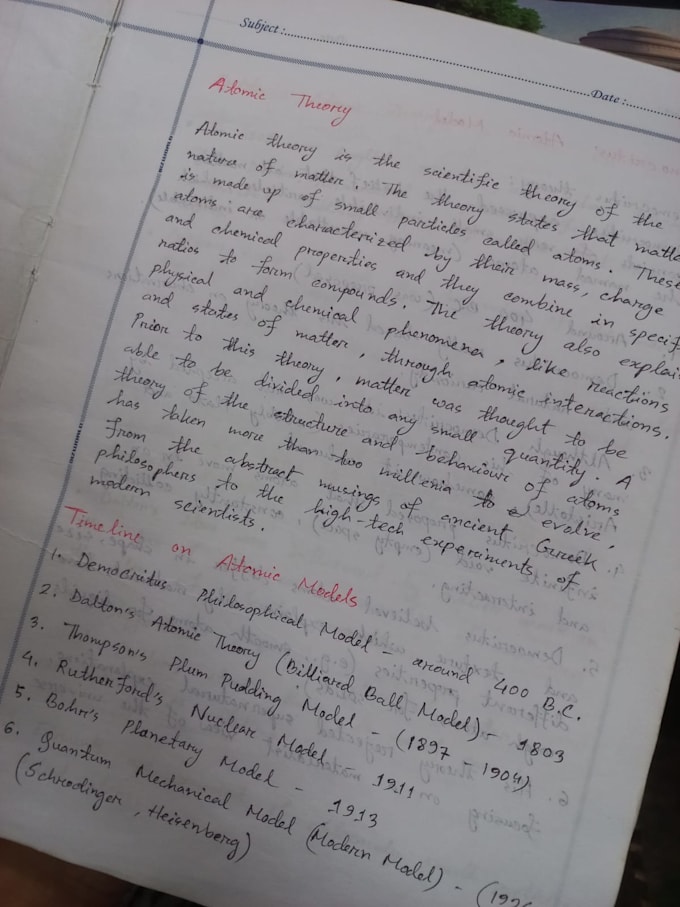 Subject :
Date :
Atomic Theory
Atomic theory is the scientific theory of the
nature of matter. The theory states that matte
is made up of small particles called atoms. These
atoms are characterized by their mass, charge
and chemical properties and they combine in specif
ratios to form compounds. The theory also explai
physical and chemical phenomena, like reactions
and states of matter, through atomic interactions.
Prior to this theory, matter was thought to be
able to be divided into any small quantity. A
theory of the structure and behaviour of atoms
has taken more than two millenia to evolve,
from the abstract musings of ancient Greek
philosophers to the high-tech experiments of
modern scientists.
Timeline on Atomic Models
1. Democritus Philosophical Model - around 400 B.C.
2. Dalton's Atomic Theory (Billiard Ball Model) - 1803
3. Thompson's Plum Pudding Model - (1897 - 1904)
4. Rutherford's Nuclear Model - 1911
5. Bohr's Planetary Model - 1913
6. Quantum Mechanical Model (Modern Model) - (192
(Schrodinger, Heisenberg)